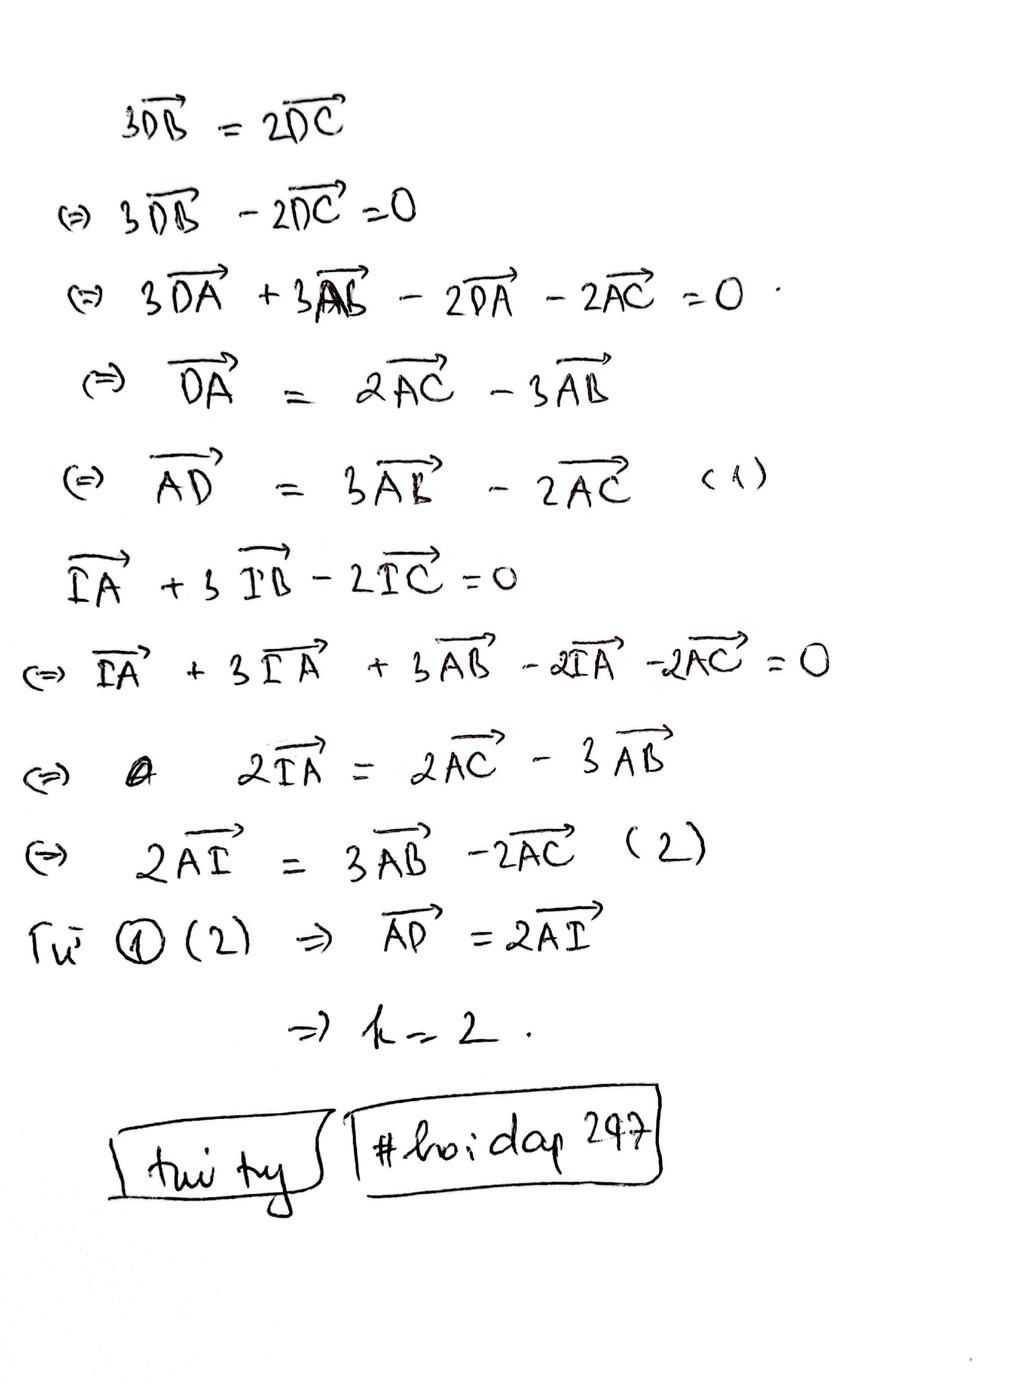 3DB = 2DC
(=) 3DB - 2DC = 0
(=) 3DA + 3AB - 2DA - 2AC = 0.
(=) DA = 2AC - 3AB
(=) AD = 3AB - 2AC (1)
IA + 3IB - 2IC = 0
(=) IA + 3IA + 3AB - 2IA - 2AC = 0
(=) 2IA = 2AC - 3AB
(=) 2AI = 3AB - 2AC (2)
Từ ① (2) => AD = 2AI
=> k = 2.
#hoidap 247